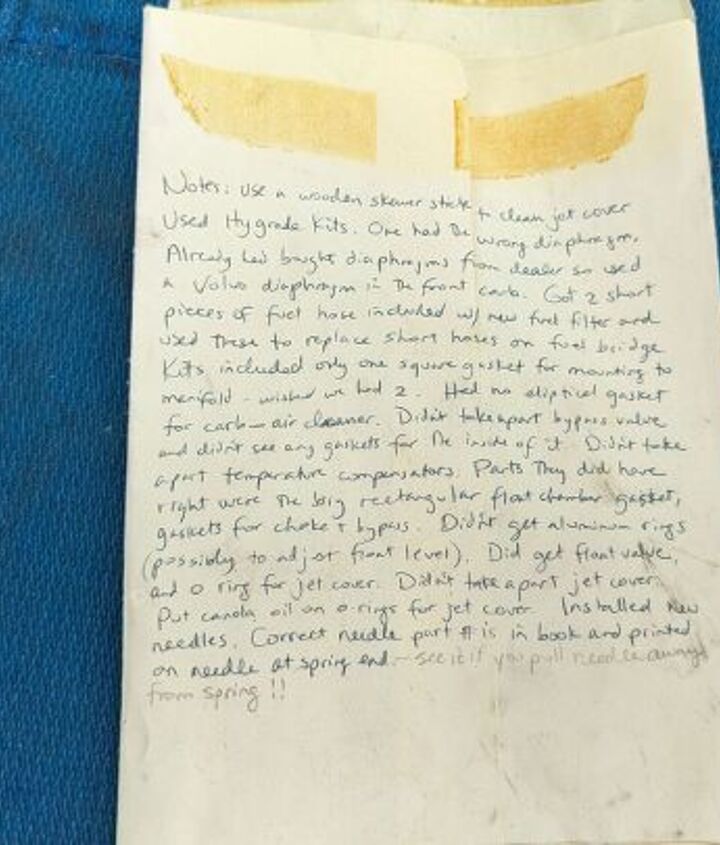 Notes: Use a wooden skewer stick to clean jet cover
Used Hygrade Kits. One had the wrong diaphragm.
Already had bought diaphragms from dealer so used
a Volvo diaphragm in the front carb. Got 2 short
pieces of fuel hose included w/ new fuel filter and
used these to replace short hoses on fuel bridge
Kits included only one square gasket for mounting to
manifold - wished we had 2. Had no eliptical gasket
for carb-air cleaner. Didn't take apart bypass valve
and didn't see any gaskets for the inside of it. Didn't take
apart temperature compensators. Parts they did have
right were the big rectangular float chamber gasket,
gaskets for choke + bypass. Didn't get aluminum rings
(possibly to adjst float level). Did get float valve,
and o ring for jet cover. Didn't take apart jet cover.
Put canola oil on o-rings for jet cover. Installed new
needles. Correct needle part # is in book and printed
on needle at spring end. - see it if you pull needle away
from spring !!